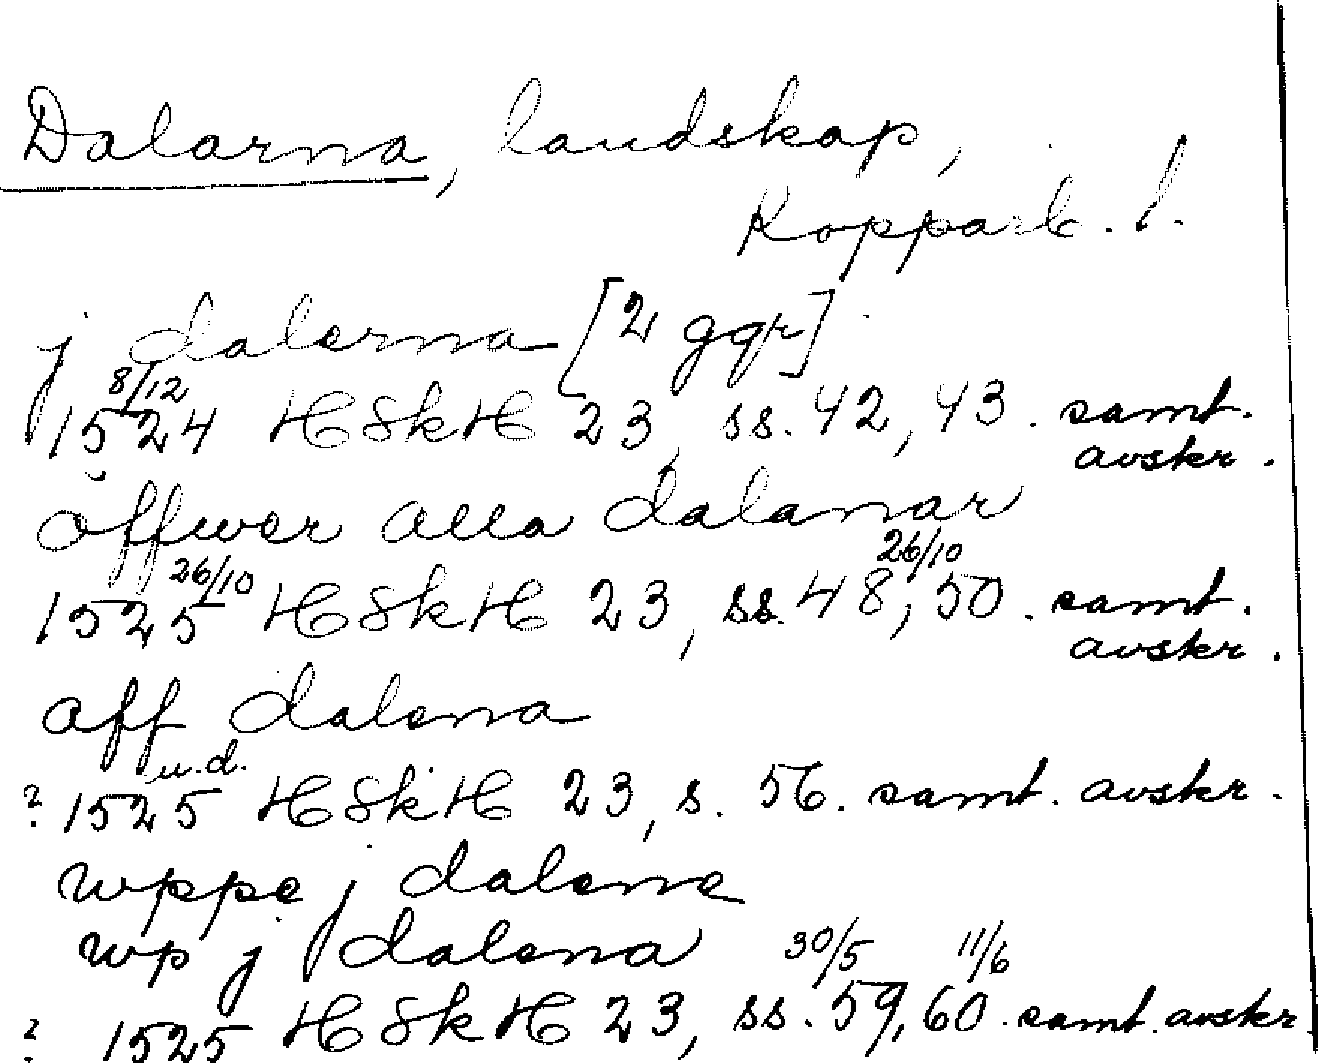 Dalarna, landskap,
Kopparb. l.
j dalerna [2 ggr]
8/12
1524 HSkH 23, ss. 42, 43. samt.
avskr.
öffwer alla dalanar
26/10 26/10
1525 HSkH 23, ss. 48, 50. samt.
avskr.
aff dalena
u.d.
? 1525 HSkH 23, s. 56. samt. avskr.
wppe j dalene
wp j dalena 30/5 11/6
? 1525 HSkH 23, ss. 59, 60. samt. avskr.